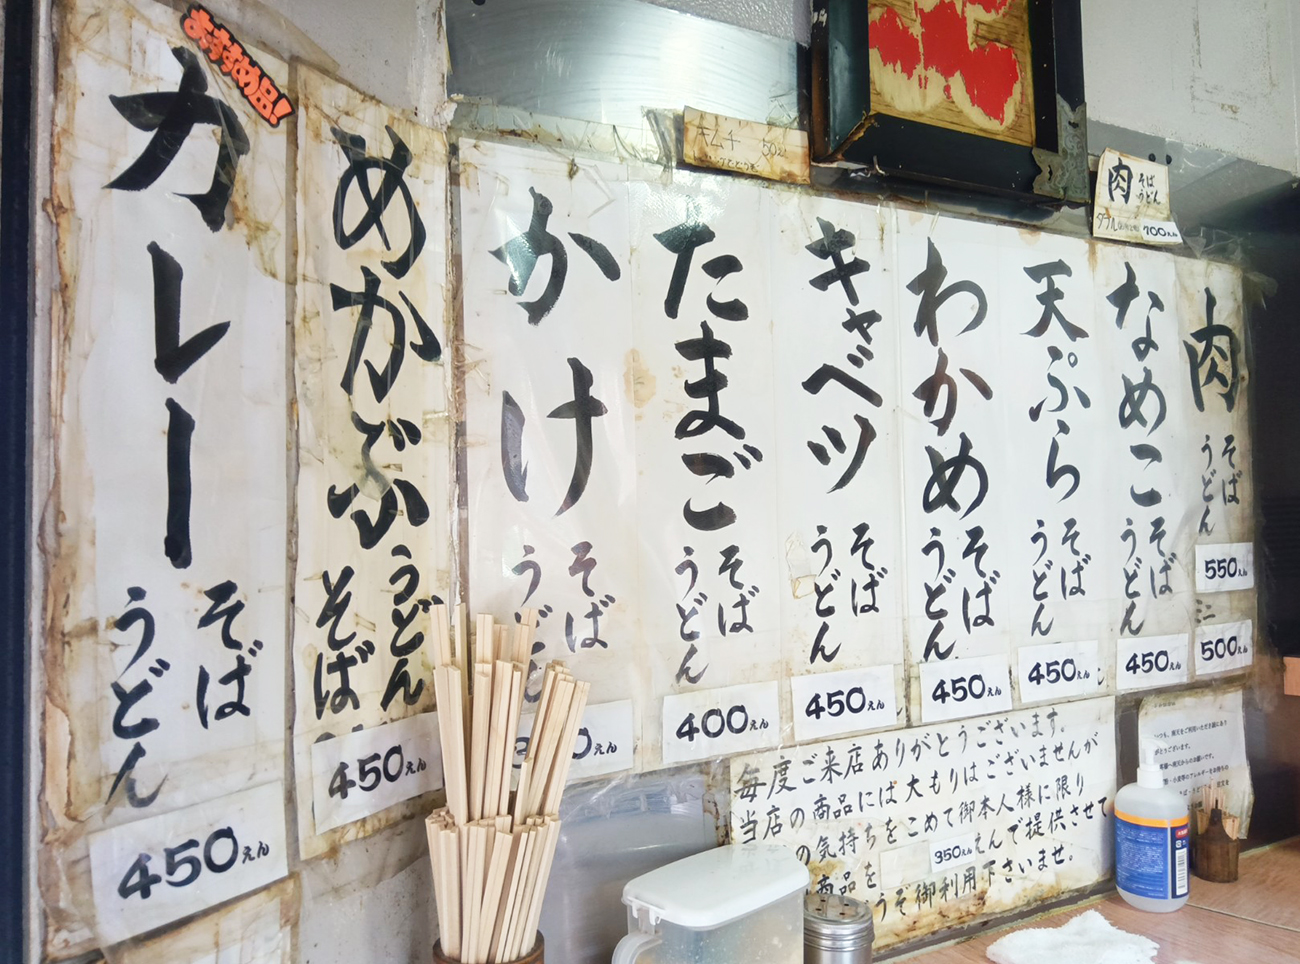 おすすめ品!
カレー
そば
うどん
450えん
めかぶ
うどん
そば
450えん
かけ
そば
うどん
えん
キムチ
たまご
そば
うどん
400えん
キャベツ
そば
うどん
450えん
わかめ
そば
うどん
450えん
天ぷら
そば
うどん
450えん
なめこ
そば
うどん
450えん
肉
そば
うどん
ダブル
700えん
肉
そば
うどん
550えん
ミニ
500えん
毎度ご来店ありがとうございます。
当店の商品には大もりはございませんが
の気持ちをこめて御本人様に限り
商品を 350えんで提供させて
うぞ御利用下さいませ。